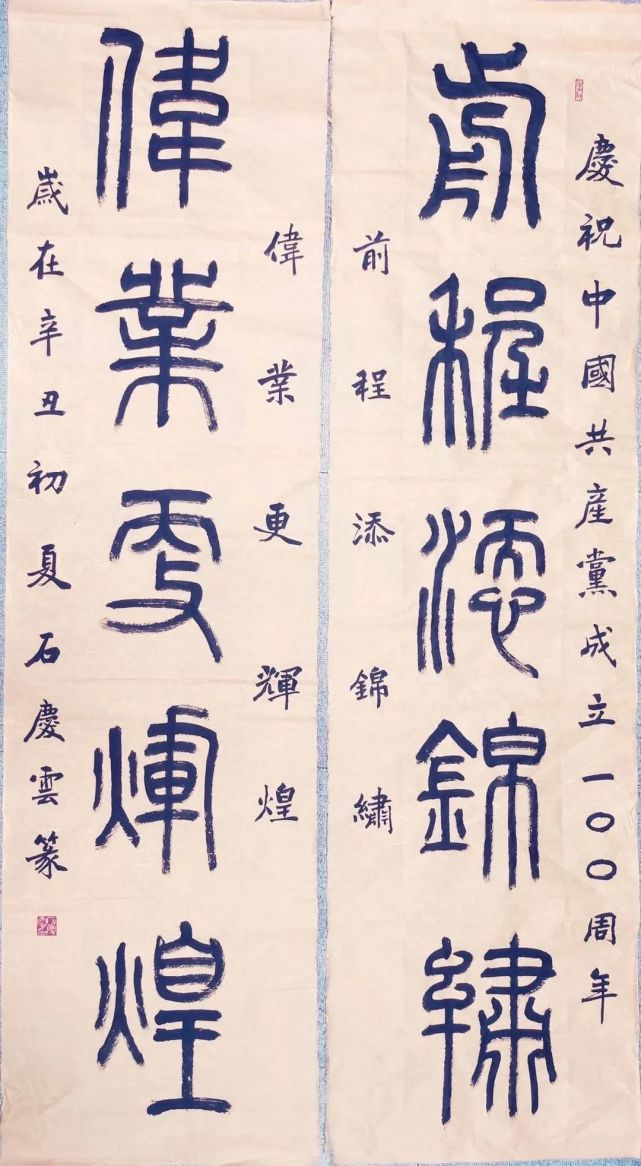 慶祝中國共產黨成立一〇〇周年
前程添錦繡
前程添錦繡
偉業更輝煌
偉業更煇煌
歲在辛丑初夏石慶雲篆